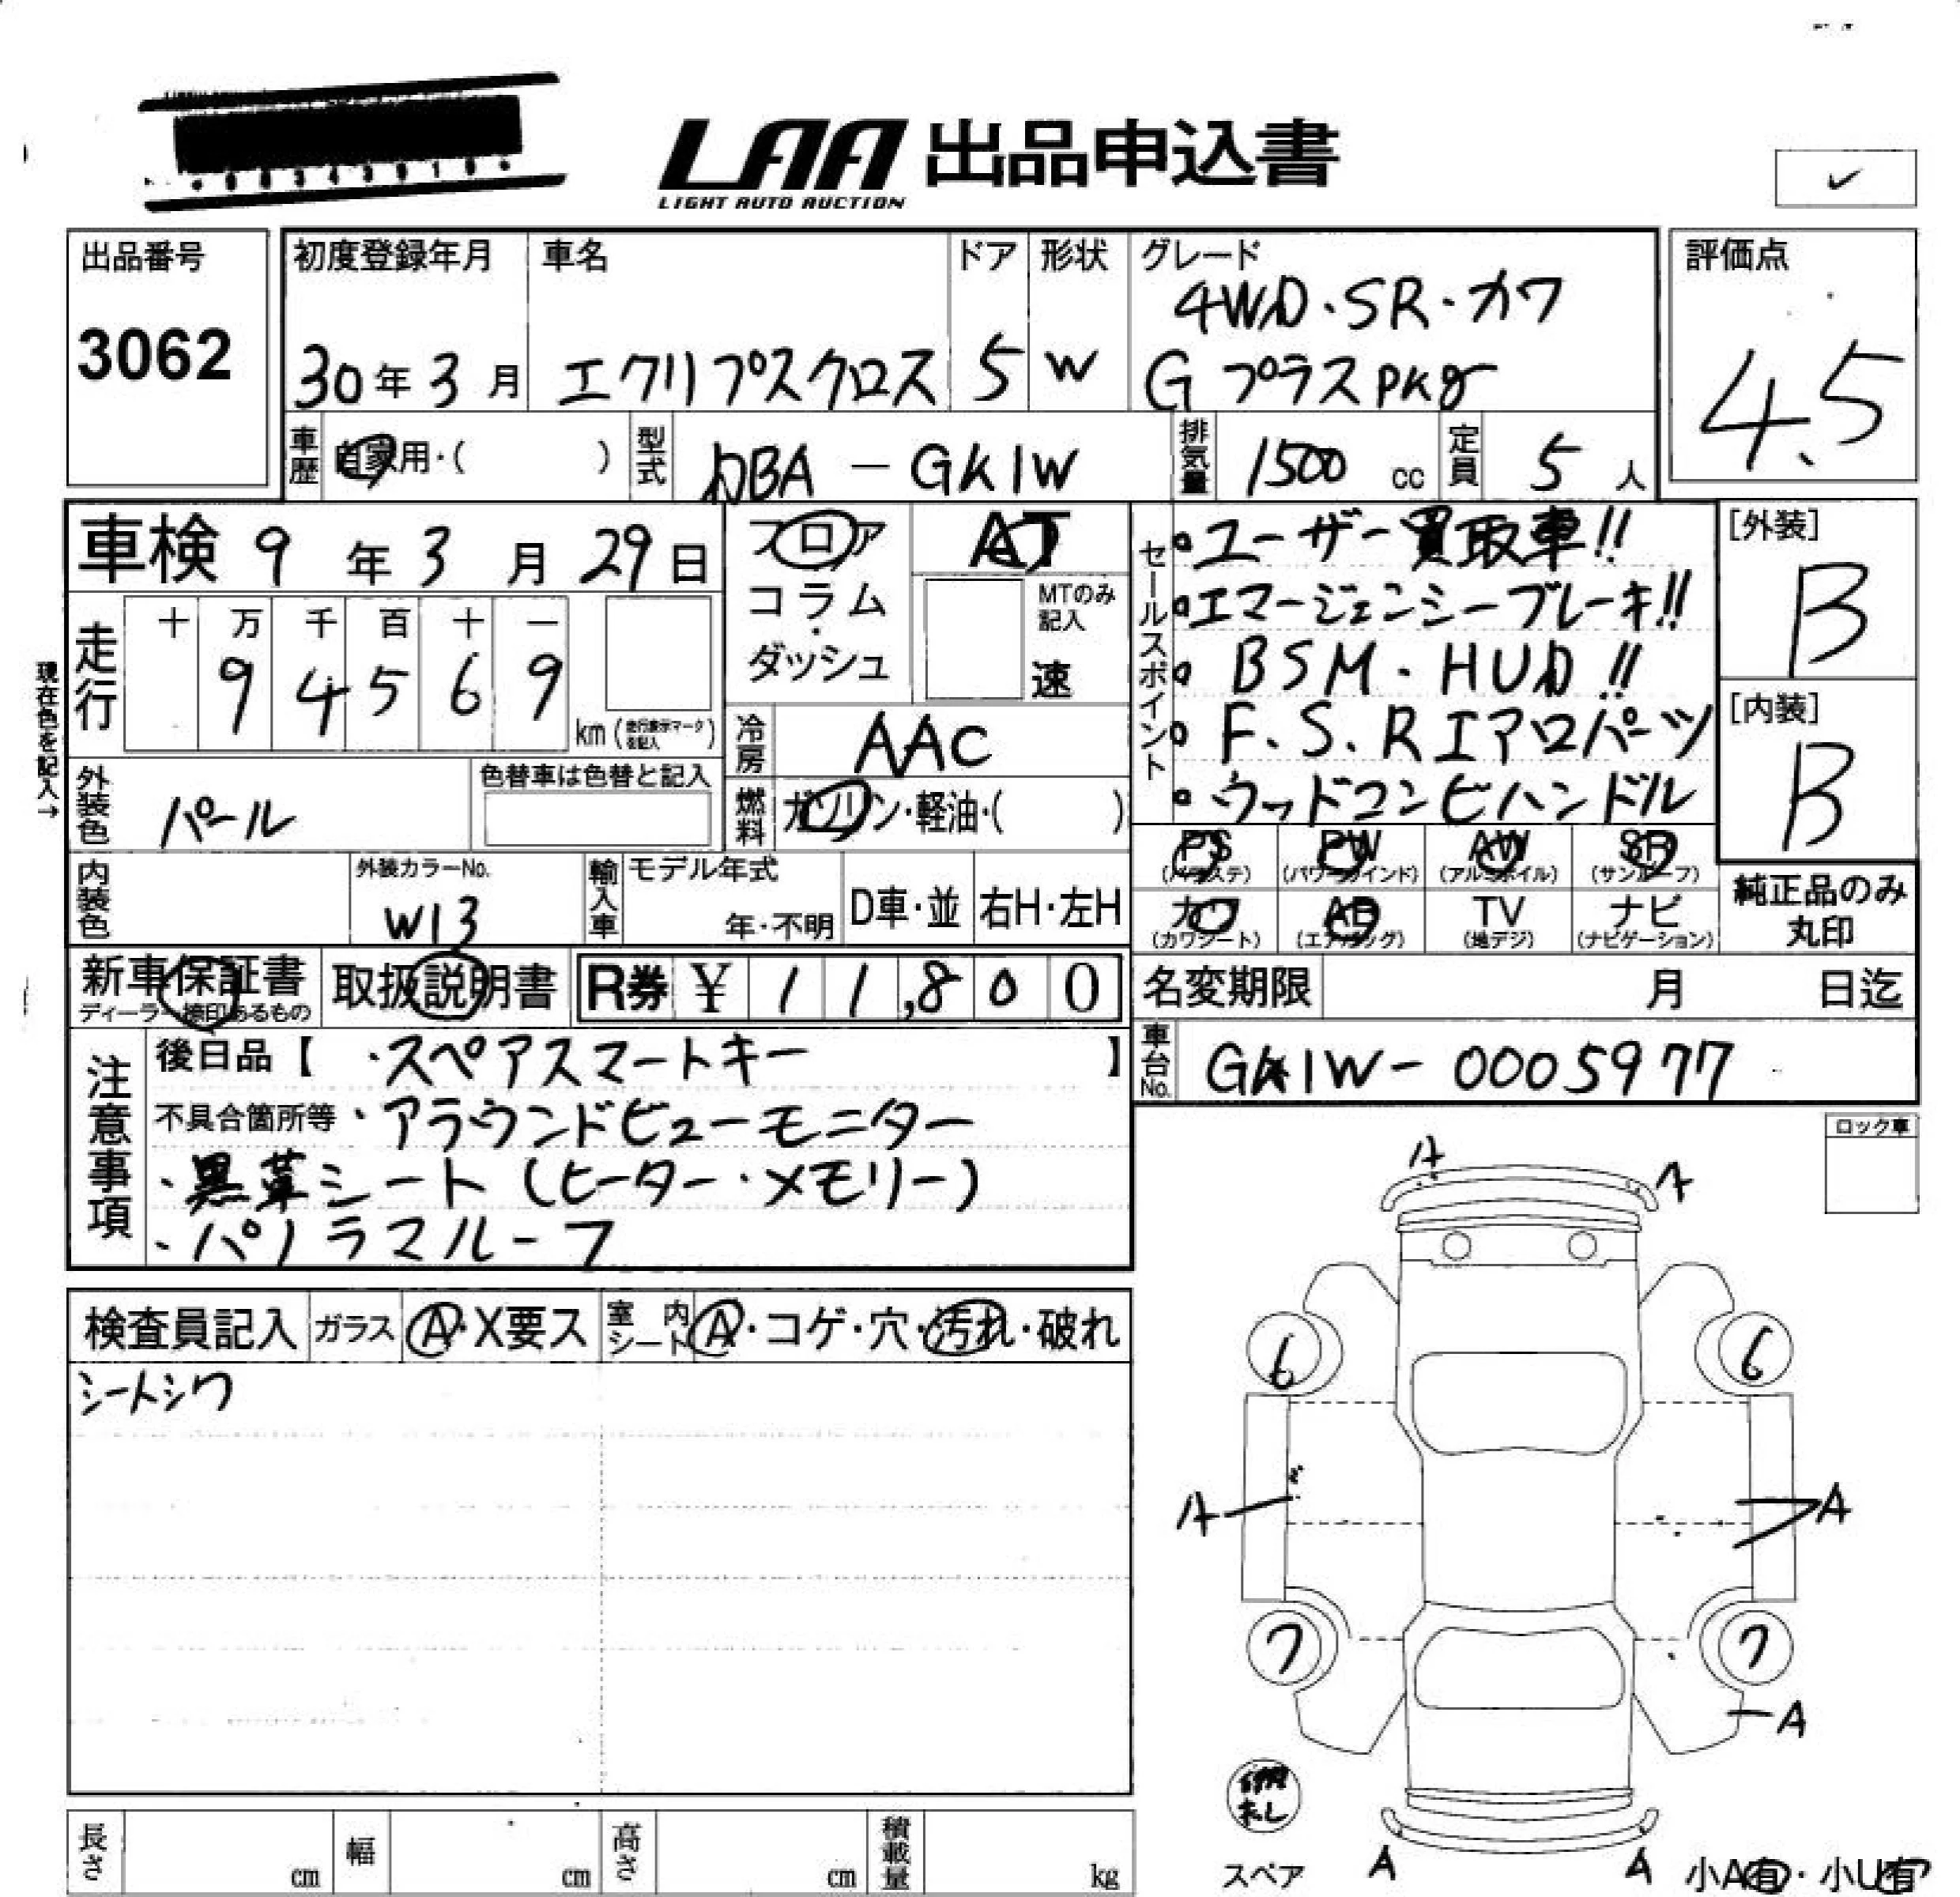 LAA 出品申込書
LIGHT AUTO AUCTION
✓
出品番号
3062
初度登録年月
30年3月
車名
エクリプスクロス
ドア
5
形状
W
グレード
4WD・SR・カワ
G プラスpkg
評価点
4.5
車歴 自家用・( )
型式 DBA-GK1W
排気量 1500 cc
定員 5人
車検 9年3月29日
フロア
コラム・
ダッシュ
AT
MTのみ記入
速
走行
十 万 千 百 十 一
9 4 5 6 9
km (走行表示マークを記入)
現在色を記入→
冷房 AAC
燃料 ガソリン・軽油・( )
外装色 パール
色替車は色替と記入
内装色
外装カラーNo.
W13
輸入車
モデル年式
年・不明
D車・並
右H・左H
セールスポイント
・ユーザー買取車!!
・エマージェンシーブレーキ!!
・BSM・HUD!!
・F.S.Rエアロパーツ
・ウッドコンビハンドル
[外装]
B
[内装]
B
PS (パワステ)
PW (パワーウインド)
AW (アルミホイル)
SR (サンルーフ)
カワ (カワシート)
AB (エアバッグ)
TV (地デジ)
ナビ (ナビゲーション)
純正品のみ
丸印
新車保証書
ディーラー捺印あるもの
取扱説明書
R券 ¥11,800
名変期限 月 日迄
車台No. GK1W-0005977
注意事項
後日品【 ・スペアスマートキー 】
不具合箇所等 ・アラウンドビューモニター
・黒革シート(ヒーター・メモリー)
・パノラマルーフ
ロック車
検査員記入
ガラス A・X要ス
室内シート A・コゲ・穴・汚れ・破れ
シートシワ
A
A
6
6
A
A
7
7
A
A
A
スペア
小A有・小U有
長さ cm
幅 cm
高さ cm
積載量 kg